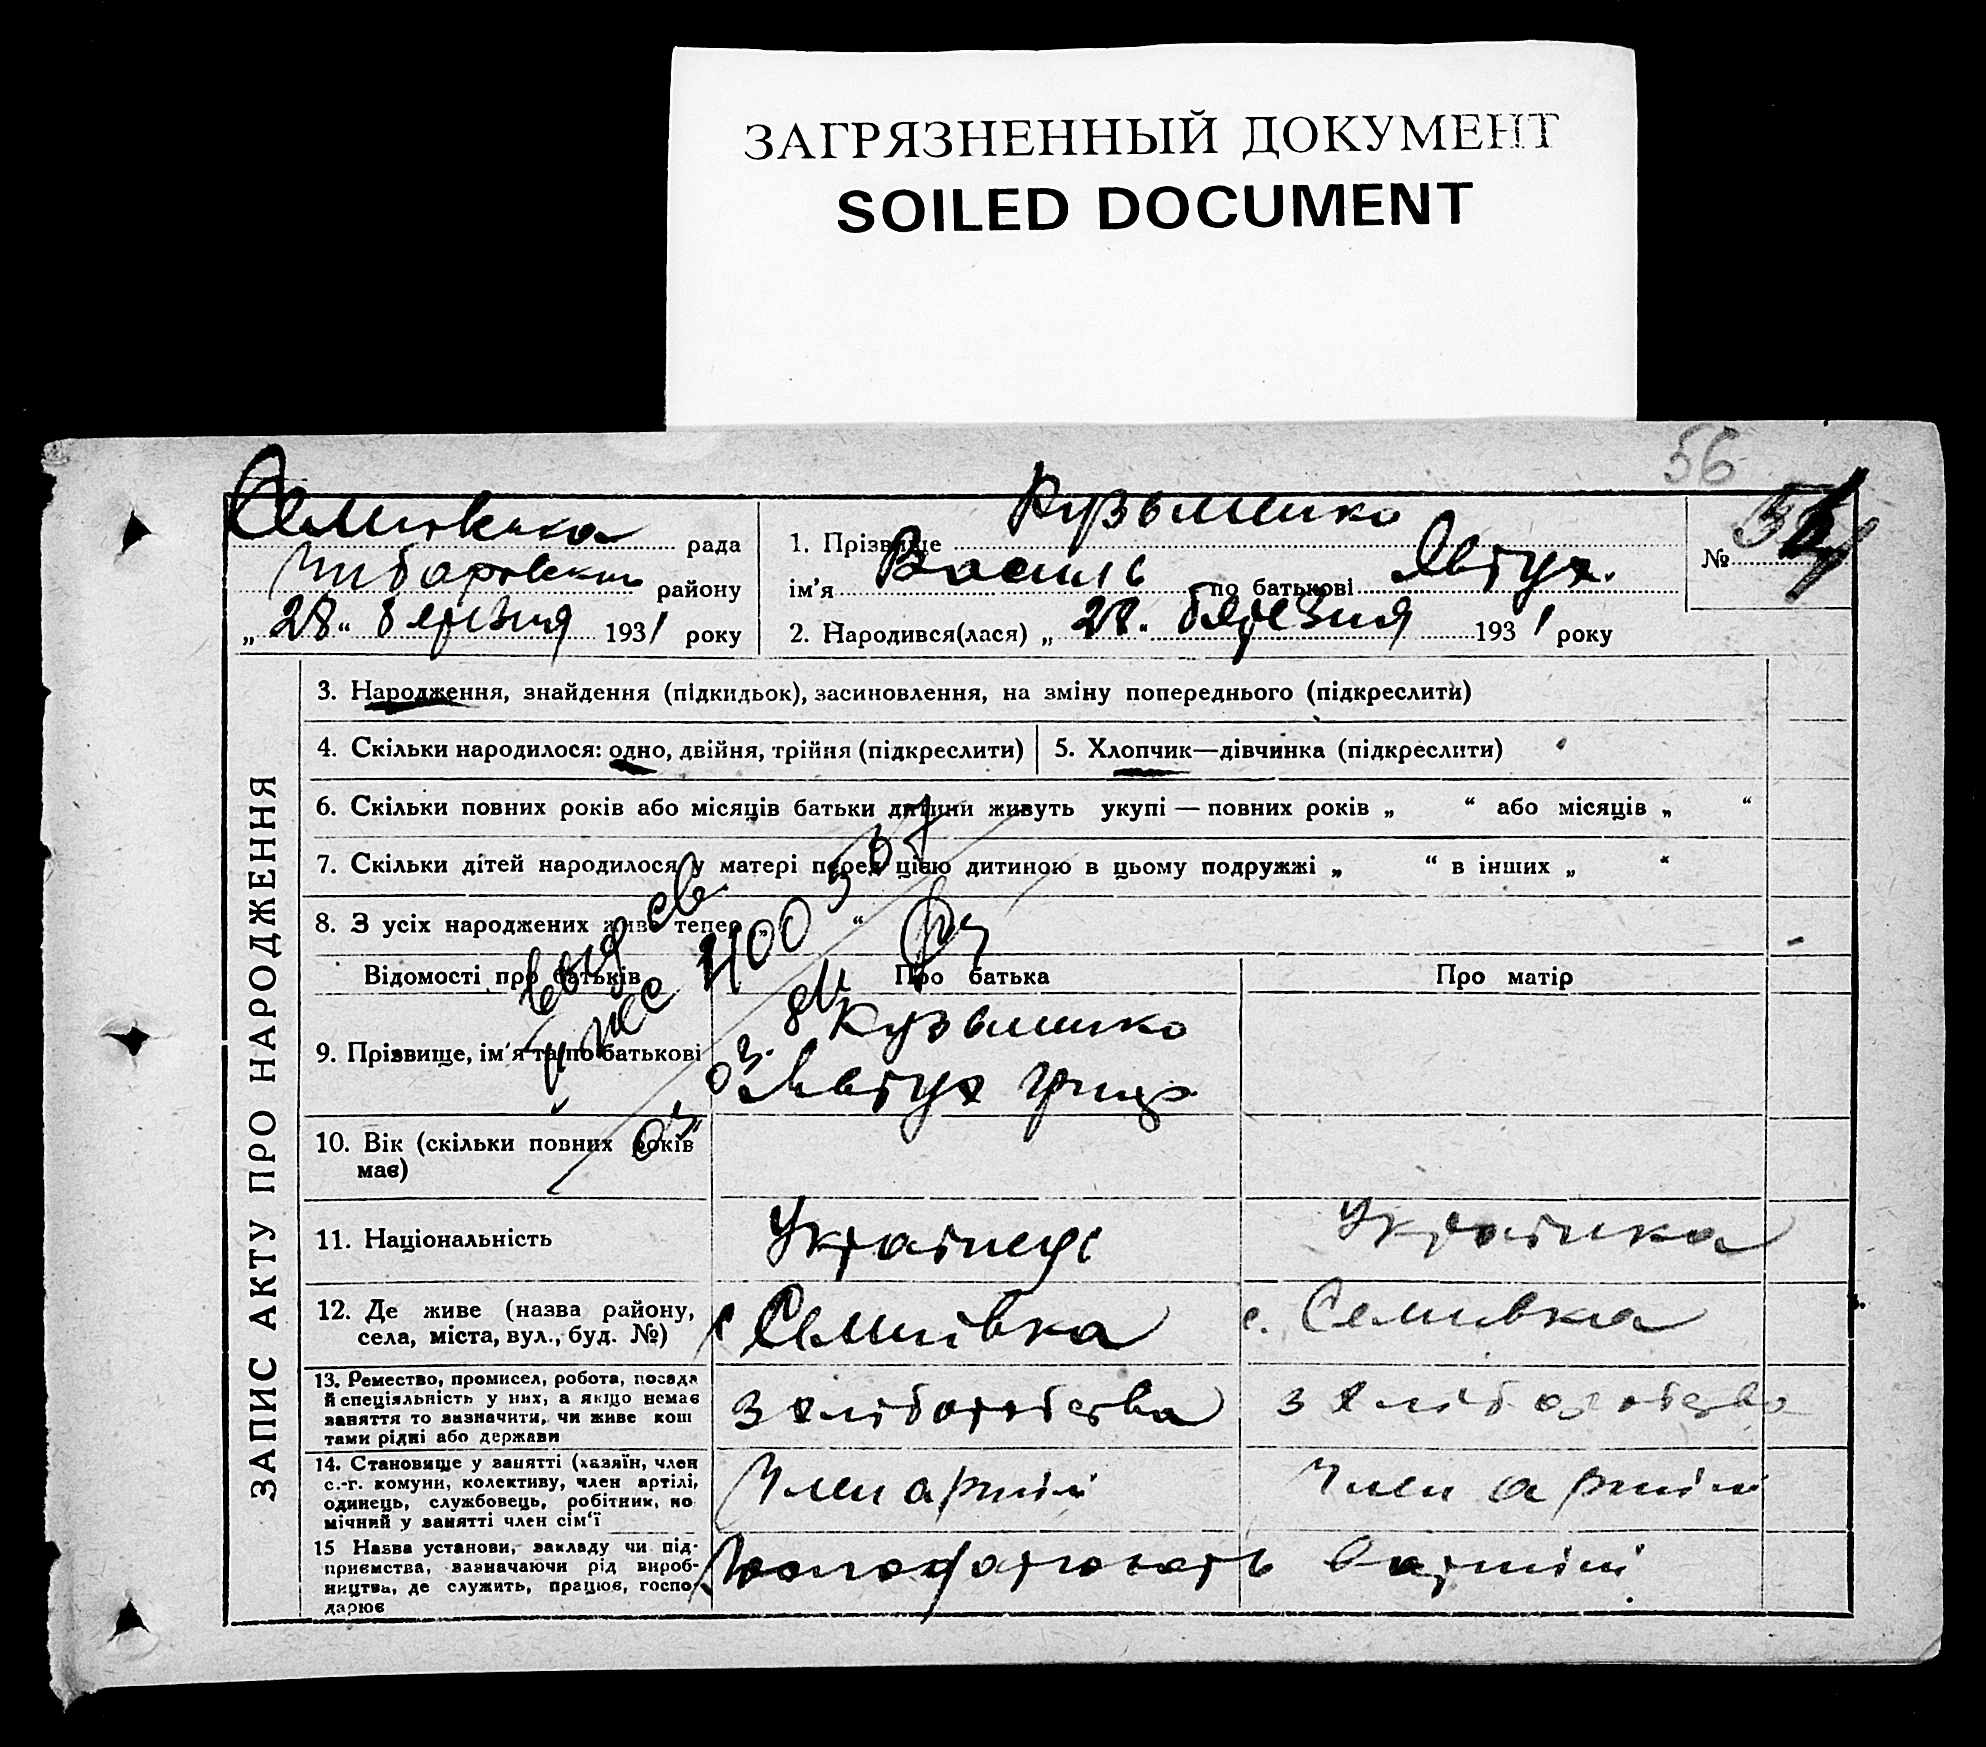 ЗАГРЯЗНЕННЫЙ ДОКУМЕНТ
SOILED DOCUMENT
56
Семивська рада
району
„28“ березня 1931 року
Кузьменко
1. Прізвище
ім'я Василь по батькові Явтух.
2. Народився(лася) „28“ березня 1931 року
№
ЗАПИС АКТУ ПРО НАРОДЖЕННЯ
3. Народження, знайдення (підкидьок), засиновлення, на зміну попереднього (підкреслити)
4. Скільки народилося: одно, двійня, трійня (підкреслити)
5. Хлопчик—дівчинка (підкреслити)
6. Скільки повних років або місяців батьки дитини живуть укупі — повних років „ “ або місяців „ “
7. Скільки дітей народилося у матері перед цією дитиною в цьому подружжі „ “ в інших „ “
8. З усіх народжених живе тепер „ “
Відомості про батьків
Про батька
Про матір
9. Прізвище, ім'я та по батькові
Кузьменко
Явтух Гриц
10. Вік (скільки повних років
має)
11. Національність
Українець
Українка
12. Де живе (назва району,
села, міста, вул., буд. №)
с Семивка
с. Семивка
13. Ремество, промисел, робота, посада
й спеціяльність у них, а якщо немає
заняття то визначити, чи живе кош
тами рідні або держави
з хліборобства
з хліборобства
14. Становище у занятті (хазяїн, член
с.-г. комуни, колективу, член артілі,
одинець, службовець, робітник, по
мічний у занятті член сім'ї
Член артілі
Член артілі
15 Назва установи, закладу чи під-
приємства, зазначаючи рід вироб-
ництва, де служить, працює, госпо-
дарює
в артілі